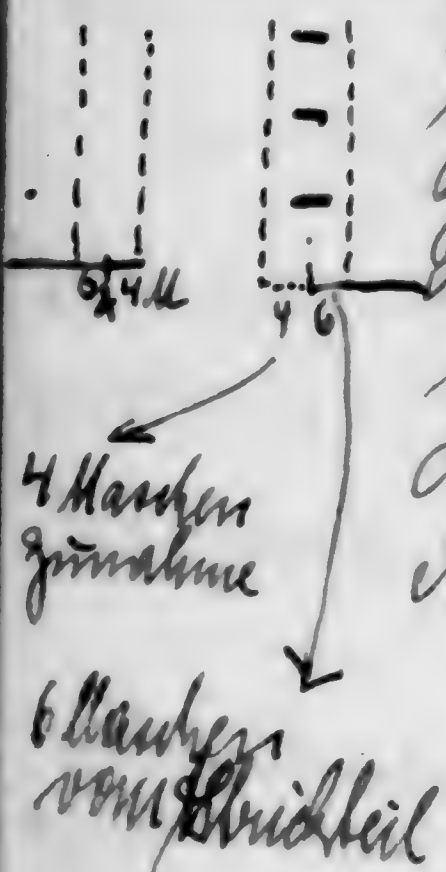 6 4 M
4 6
4 Maschen
Zunahme
6 Maschen
vom Strickteil